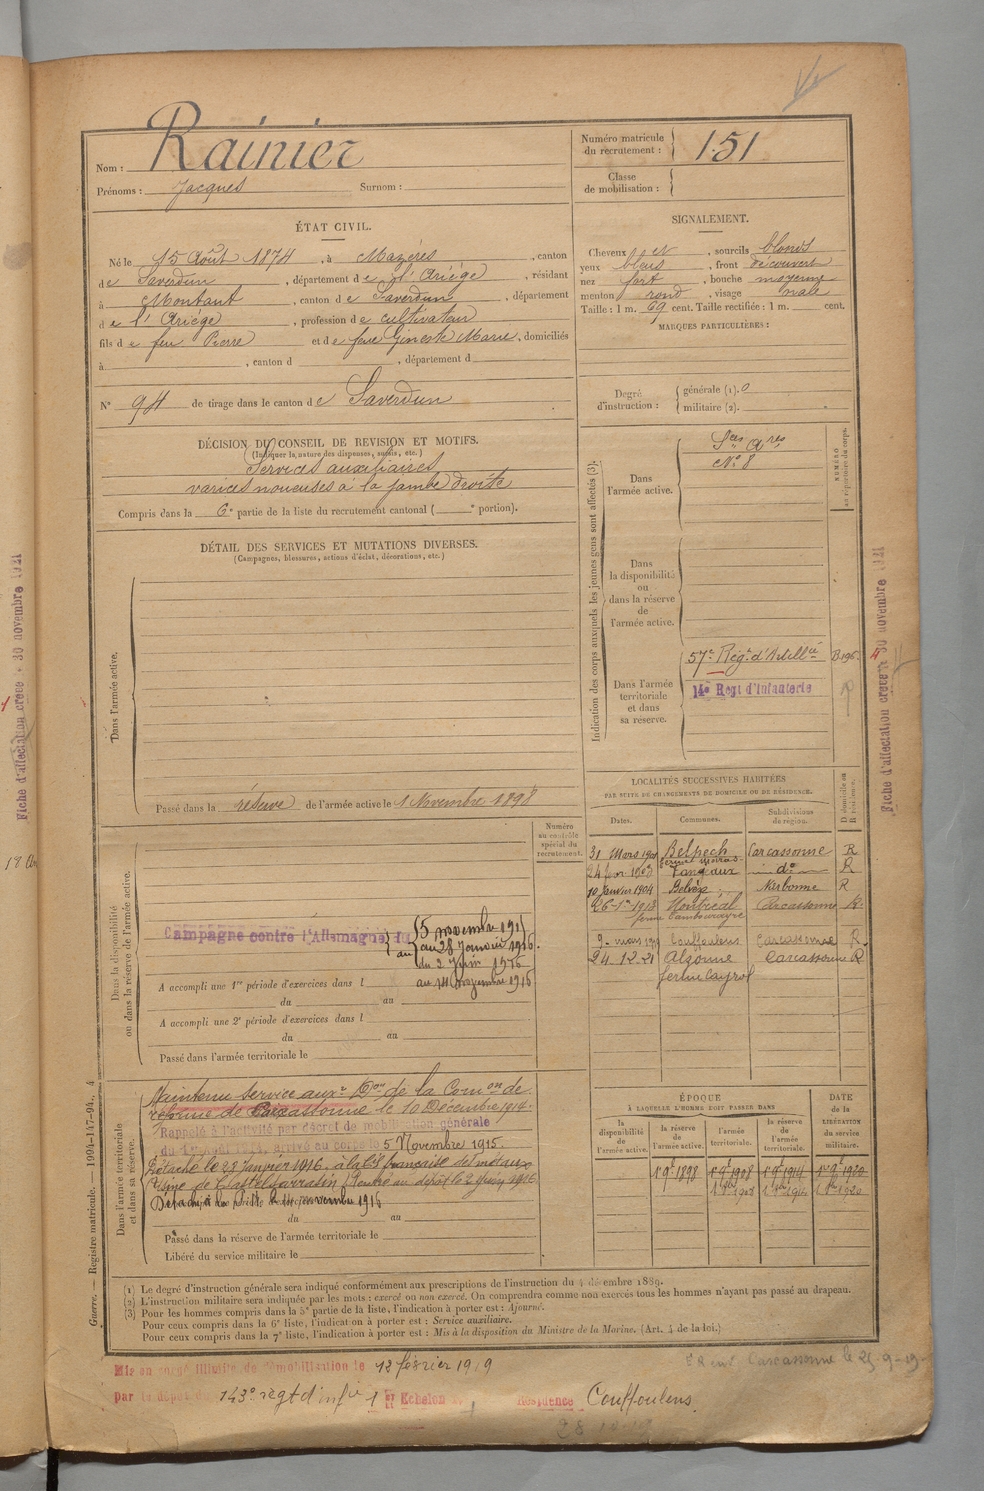 Nom : Rainier
Prénoms : Jacques Surnom :
Numéro matricule du recrutement : 151
Classe de mobilisation :
ÉTAT CIVIL.
Né le 15 Août 1874, à Mazères, canton
de Saverdun, département de l'Ariège, résidant
à Montaut, canton de Saverdun, département
de l'Ariège, profession de cultivateur
fils de feu Pierre et de feue Gineste Marie, domiciliés
à , canton d , département d
N° 94 de tirage dans le canton de Saverdun
SIGNALEMENT.
Cheveux et, sourcils blonds
yeux bleus, front découvert
nez fort, bouche moyenne
menton rond, visage ovale
Taille : 1 m. 69 cent. Taille rectifiée : 1 m. cent.
MARQUES PARTICULIÈRES :
Degré d'instruction : générale (1). 0
militaire (2).
DÉCISION DU CONSEIL DE REVISION ET MOTIFS.
(Indiquer la nature des dispenses, sursis, etc.)
Services auxiliaires
varices noueuses à la jambe droite
Compris dans la 6e partie de la liste du recrutement cantonal ( e portion).
DÉTAIL DES SERVICES ET MUTATIONS DIVERSES.
(Campagnes, blessures, actions d'éclat, décorations, etc.)
Dans l'armée active.
Passé dans la réserve de l'armée active le 1 Novembre 1898
Indication des corps auxquels les jeunes gens sont affectés (3).
NUMÉRO au répertoire du corps.
Dans l'armée active.
Sces Ares
N° 8
Dans la disponibilité ou dans la réserve de l'armée active.
Dans l'armée territoriale et dans sa réserve.
57e Régt d'Artillie
14e Regt d'Infanterie
Fiche d'affectation creée 30 novembre 1921
LOCALITÉS SUCCESSIVES HABITÉES
PAR SUITE DE CHANGEMENTS DE DOMICILE OU DE RÉSIDENCE.
D domicile ou R résidence.
Dates. Communes. Subdivisions de région.
31 Mars 190 Belpech Carcassonne R
24 fevr 190 Fanjeaux do R
10 Janvier 1904 Belvèze Narbonne R
Montréal Carcassonne R
9 mars 1919 Couffoulens Carcassonne R
24.12.21 Alzonne Carcassonne R
ferme Cayrol
Numéro au contrôle spécial du recrutement.
Dans la disponibilité ou dans la réserve de l'armée active.
Campagne contre l'Allemagne du 5 novembre 1915
au 28 Janvier 1916
du 2 Juin 1916
au 14 novembre 1916
A accompli une 1re période d'exercices dans l
du au
A accompli une 2e période d'exercices dans l
du au
Passé dans l'armée territoriale le
Dans l'armée territoriale et dans sa réserve.
Maintenu service auxre Don de la Comon de
réforme de Carcassonne le 10 Décembre 1914.
Rappelé à l'activité par décret de mobilisation générale
du 1er Août 1914, arrivé au corps le 5 Novembre 1915.
Détaché le 28 janvier 1916 à la Cie française des métaux
Usine de Castelsarrasin. Rentré au dépôt le 2 Juin 1916
du au
Passé dans la réserve de l'armée territoriale le
Libéré du service militaire le
ÉPOQUE
À LAQUELLE L'HOMME DOIT PASSER DANS
DATE de la LIBÉRATION du service militaire.
la disponibilité de l'armée active. la réserve de l'armée active. l'armée territoriale. la réserve de l'armée territoriale.
1 9bre 1898 1er 9bre 1908 1er 9bre 1914 1er 9bre 1920
Guerre. — Registre matricule. — 1994-147-94. 4
(1) Le degré d'instruction générale sera indiqué conformément aux prescriptions de l'instruction du 4 décembre 1889.
(2) L'instruction militaire sera indiquée par les mots : exercé ou non exercé. On comprendra comme non exercés tous les hommes n'ayant pas passé au drapeau.
(3) Pour les hommes compris dans la 5e partie de la liste, l'indication à porter est : Ajourné.
Pour ceux compris dans la 6e liste, l'indication à porter est : Service auxiliaire.
Pour ceux compris dans la 7e liste, l'indication à porter est : Mis à la disposition du Ministre de la Marine. (Art. 4 de la loi.)
Mis en congé illimité de démobilisation le 12 février 1919
par le dépôt du 143e regt d'infie 1er Echelon Résidence Couffoulens.
Carcassonne le 25-9-19